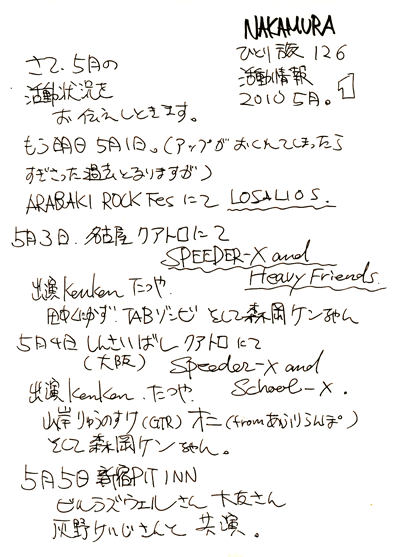 NAKAMURA
ひとり旅 126
活動情報
2010 5月。 1
さて、5月の
活動状況を
お伝えしときます。
もう明日5月1日。(アップがおくれてしまったら
すぎさった過去となりますが)
ARABAKI ROCK Fes にて LOSALIOS.
5月3日.名古屋クアトロにて
SPEEDER-X and
Heavy Friends.
出演 Kenken たつや.
田中くにかず TABゾンビ そして森岡ケンちゃん
5月4日 しんさいばしクアトロにて
(大阪) Speeder-X and
School-X.
出演 Kenken.たつや.
山岸りゅうのすけ(GTR) オニ(fromあふりらんぽ)
そして森岡ケンちゃん。
5月5日 新宿PIT INN
ビルラズウェルさん 大友さん
灰野けいじさんと共演。